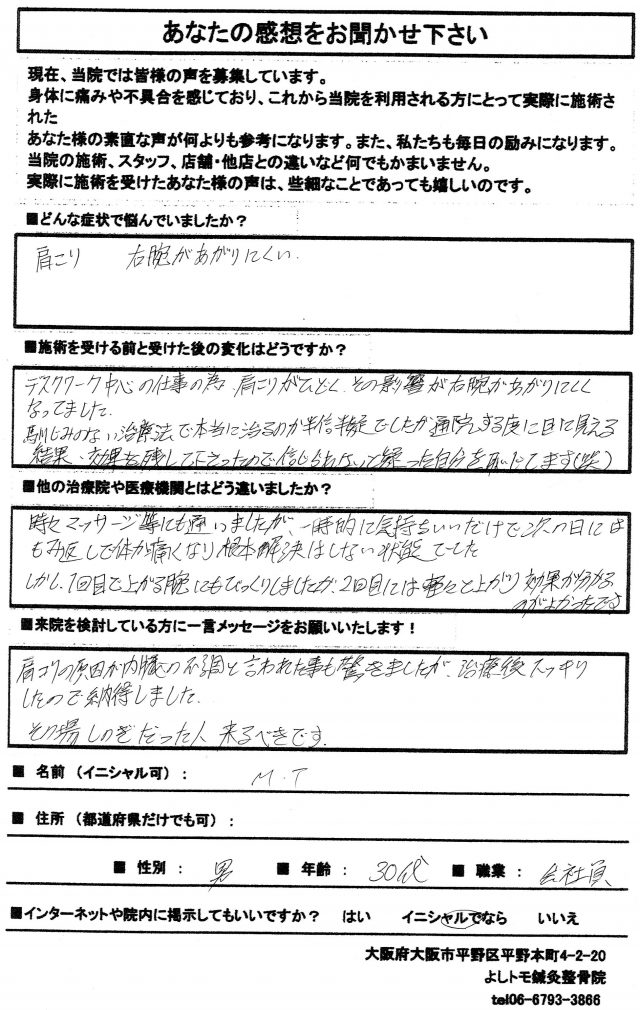 あなたの感想をお聞かせ下さい
現在、当院では皆様の声を募集しています。
身体に痛みや不具合を感じており、これから当院を利用される方にとって実際に施術さ
れた
あなた様の素直な声が何よりも参考になります。また、私たちも毎日の励みになります。
当院の施術、スタッフ、店舗・他店との違いなど何でもかまいません。
実際に施術を受けたあなた様の声は、些細なことであっても嬉しいのです。
■どんな症状で悩んでいましたか？
肩こり 右腕があがりにくい.
■施術を受ける前と受けた後の変化はどうですか？
デスクワーク中心の仕事の為、肩こりがひどく、その影響が右腕があがりにくく
なってました.
馴じみのない治療法で本当に治るのか半信半疑でしたが通院する度に目に見える
結果、効果を残して下さったので信じられないと疑った自分を恥じてます(笑)
■他の治療院や医療機関とはどう違いましたか？
時々マッサージ等にも通いましたが、一時的に気持ちいいだけで次の日には
もみ返しで体が痛くなり根本解決はしない状態でした
しかし、1回目で上がる腕にもびっくりしましたが、2回目には軽々と上がり効果が分かる
のがよかったです
■来院を検討している方に一言メッセージをお願いいたします！
肩こりの原因が内臓の不調と言われた事も驚きましたが、治療後スッキリ
したので納得しました.
その場しのぎだった人 来るべきです.
■ 名前（イニシャル可）： M.T
■ 住所（都道府県だけでも可）：
■ 性別： 男 ■ 年齢： 30代 ■ 職業： 会社員
■インターネットや院内に掲示してもいいですか？ はい イニシャルでなら いいえ
大阪府大阪市平野区平野本町4-2-20
よしトモ鍼灸整骨院
tel06-6793-3866